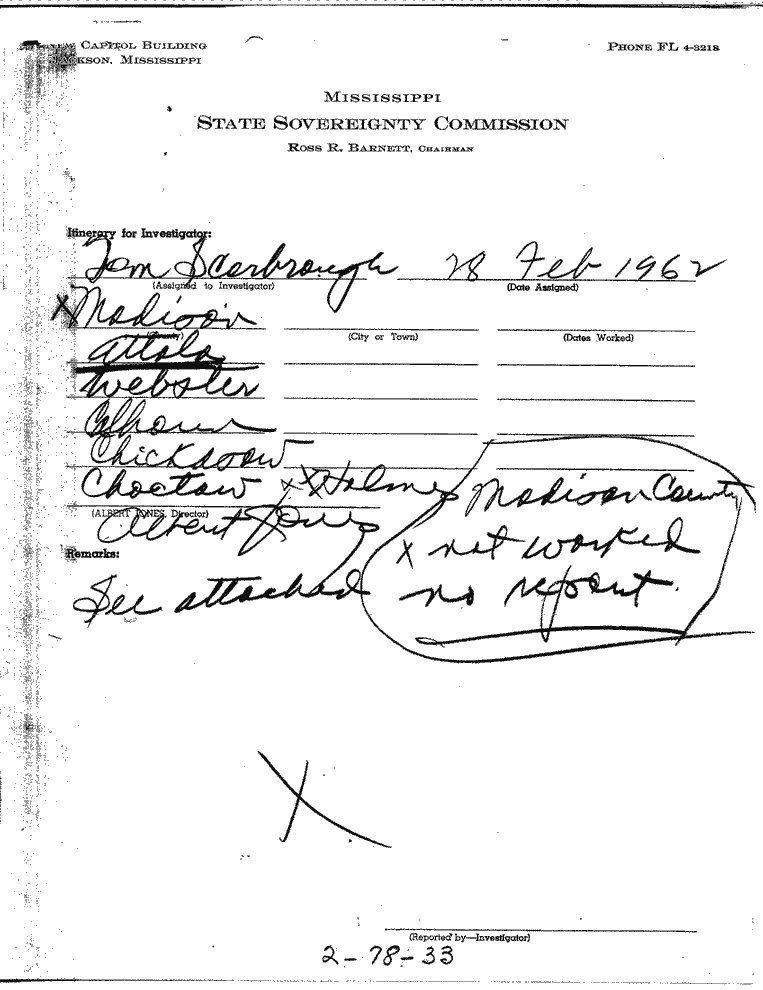 CAPITOL BUILDING
JACKSON, MISSISSIPPI
PHONE FL 4-3218
MISSISSIPPI
STATE SOVEREIGNTY COMMISSION
ROSS R. BARNETT, CHAIRMAN
Itinerary for Investigator:
Tom Scarbrough 28 Feb 1962
(Assigned to Investigator) (Date Assigned)
X Madison
(County) (City or Town) (Dates Worked)
Attala
Webster
Calhoun
Chickasaw
Choctaw x X Holmes
Madison County
(ALBERT JONES, Director)
Albert Jones
x not worked
Remarks:
no report.
See attached
X
(Reported by—Investigator)
2-78-33